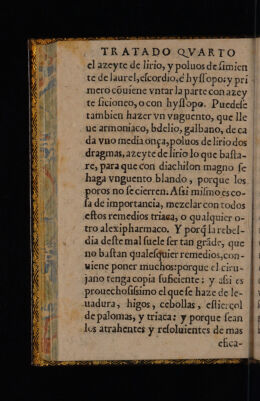 TRATADO QVARTO
el azeyte de lirio, y poluos de simien
te de laurel, escordio, é hyssopo: y pri
mero cõuiene vntar la parte con azey
te sicioneo, o con hyssopo. Puedese
tambien hazer vn vnguento, que lle
ue armoniaco, bdelio, galbano, de ca
da vno media onça, poluos de lirio dos
dragmas, azeyte de lirio lo que basta-
re, para que con diachilon magno se
haga vnguento blando, porque los
poros no se cierren. Assi mismo es co-
sa de importancia, mezclar con todos
estos remedios triaca, o qualquier o-
tro alexipharmaco. Y porq̃ la rebel-
dia deste mal suele ser tan grãde, que
no bastan qualesquier remedios, con-
uiene poner muchos: porque el ciru-
jano tenga copia suficiente: y assi es
prouechosissimo el que se haze de le-
uadura, higos, cebollas, estiercol
de palomas, y triaca: y porque sean
los atrahentes y resoluientes de mas
efica-